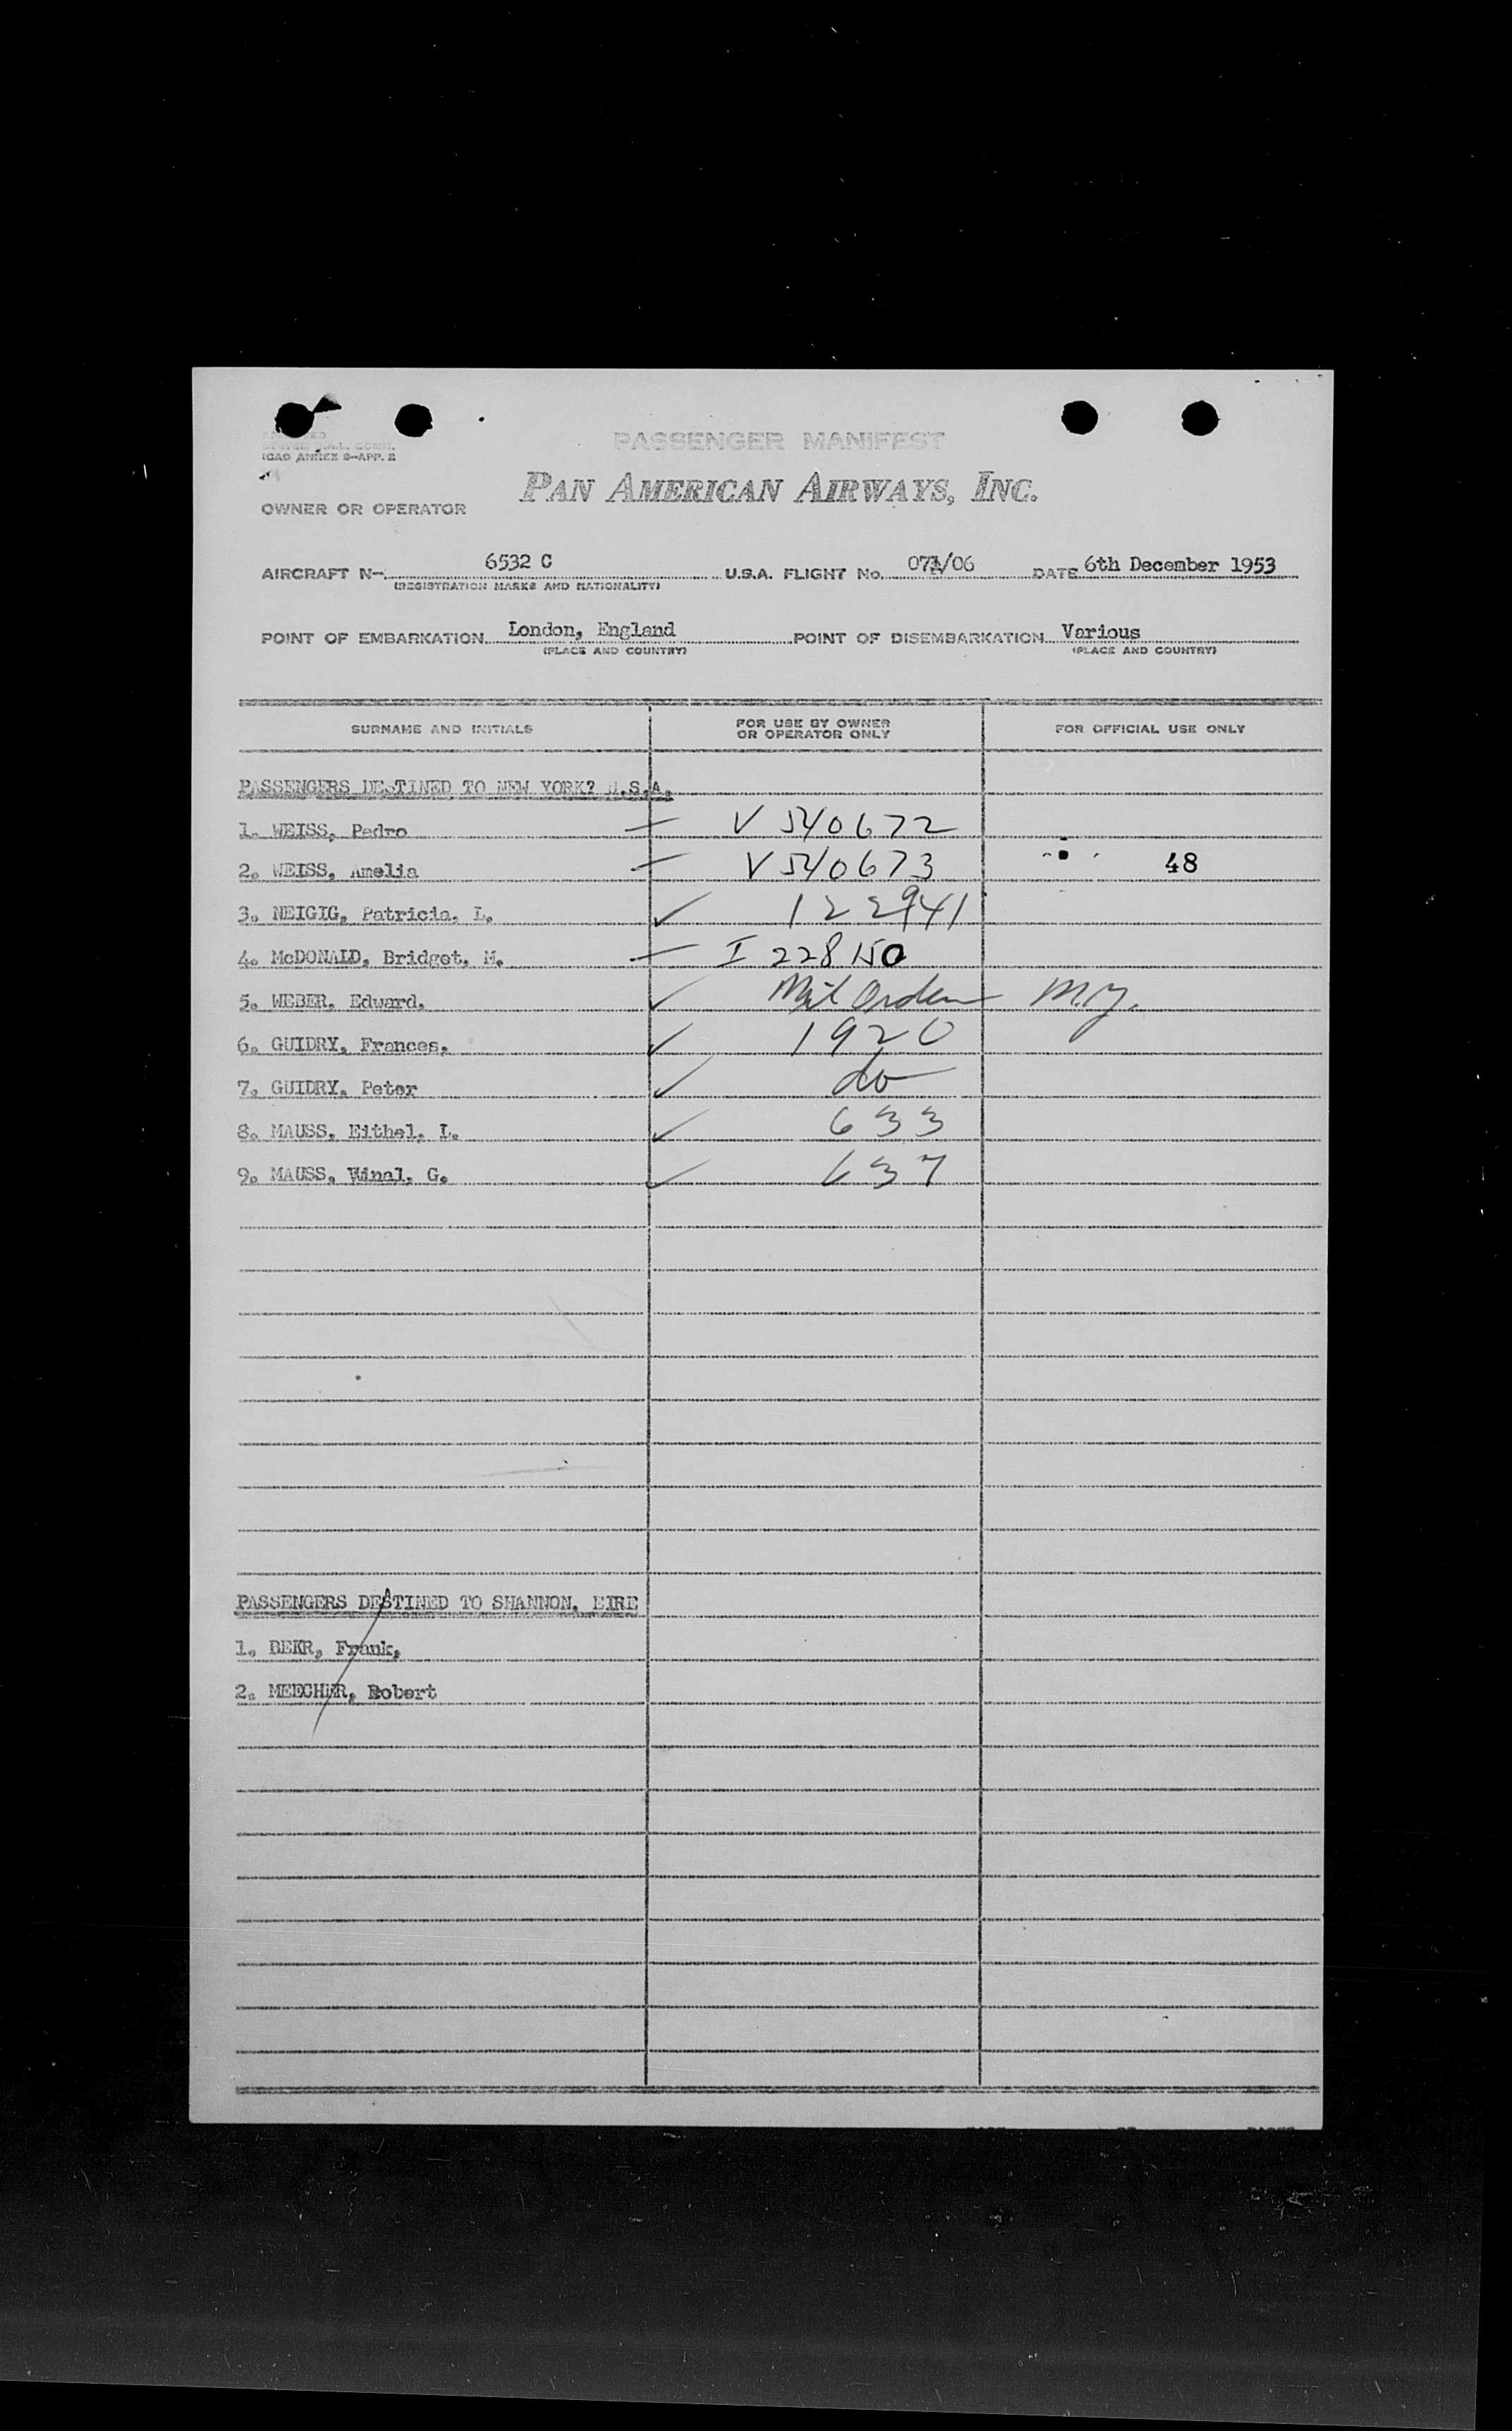 PASSENGER MANIFEST
ICAO ANNEX 9-APP. 2
PAN AMERICAN AIRWAYS, INC.
OWNER OR OPERATOR
AIRCRAFT N- 6532 C U.S.A. FLIGHT No. 071/06 DATE 6th December 1953
(REGISTRATION MARKS AND NATIONALITY)
POINT OF EMBARKATION London, England POINT OF DISEMBARKATION Various
(PLACE AND COUNTRY) (PLACE AND COUNTRY)
SURNAME AND INITIALS FOR USE BY OWNER OR OPERATOR ONLY FOR OFFICIAL USE ONLY
PASSENGERS DESTINED TO NEW YORK? U.S.A.
1. WEISS, Pedro — V 540672
2. WEISS, Amelia — V 540673 48
3. NEIGIG, Patricia, L. ✓ 122941
4. McDONALD, Bridget, M. — I 228150
5. WEBER, Edward, ✓ Mil Orden M.J.
6. GUIDRY, Frances, ✓ 1920
7. GUIDRY, Peter ✓ do
8. MAUSS, Eithel, L. ✓ 633
9. MAUSS, Winal, G. ✓ 637
PASSENGERS DESTINED TO SHANNON, EIRE
1. DEKR, Frank,
2. MEECHER, Robert